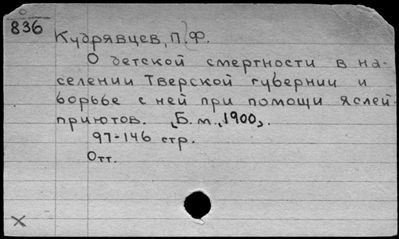 836
Кудрявцев, П.Ф.
О детской смертности в на-
селении Тверской губернии и
борьбе с ней при помощи яслей-
приютов. [Б.м., 1900].
97-146 стр.
Отт.